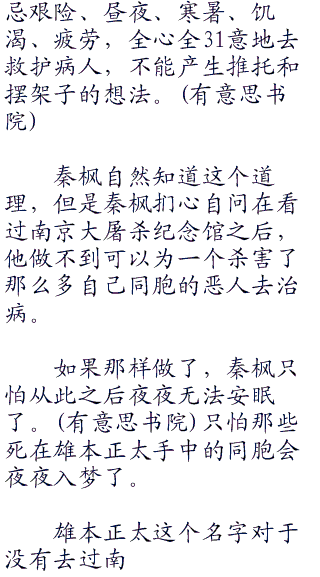 忌艰险、昼夜、寒暑、饥
渴、疲劳，全心全31意地去
救护病人，不能产生推托和
摆架子的想法。(有意思书
院)
秦枫自然知道这个道
理，但是秦枫扪心自问在看
过南京大屠杀纪念馆之后，
他做不到可以为一个杀害了
那么多自己同胞的恶人去治
病。
如果那样做了，秦枫只
怕从此之后夜夜无法安眠
了。(有意思书院)只怕那些
死在雄本正太手中的同胞会
夜夜入梦了。
雄本正太这个名字对于
没有去过南